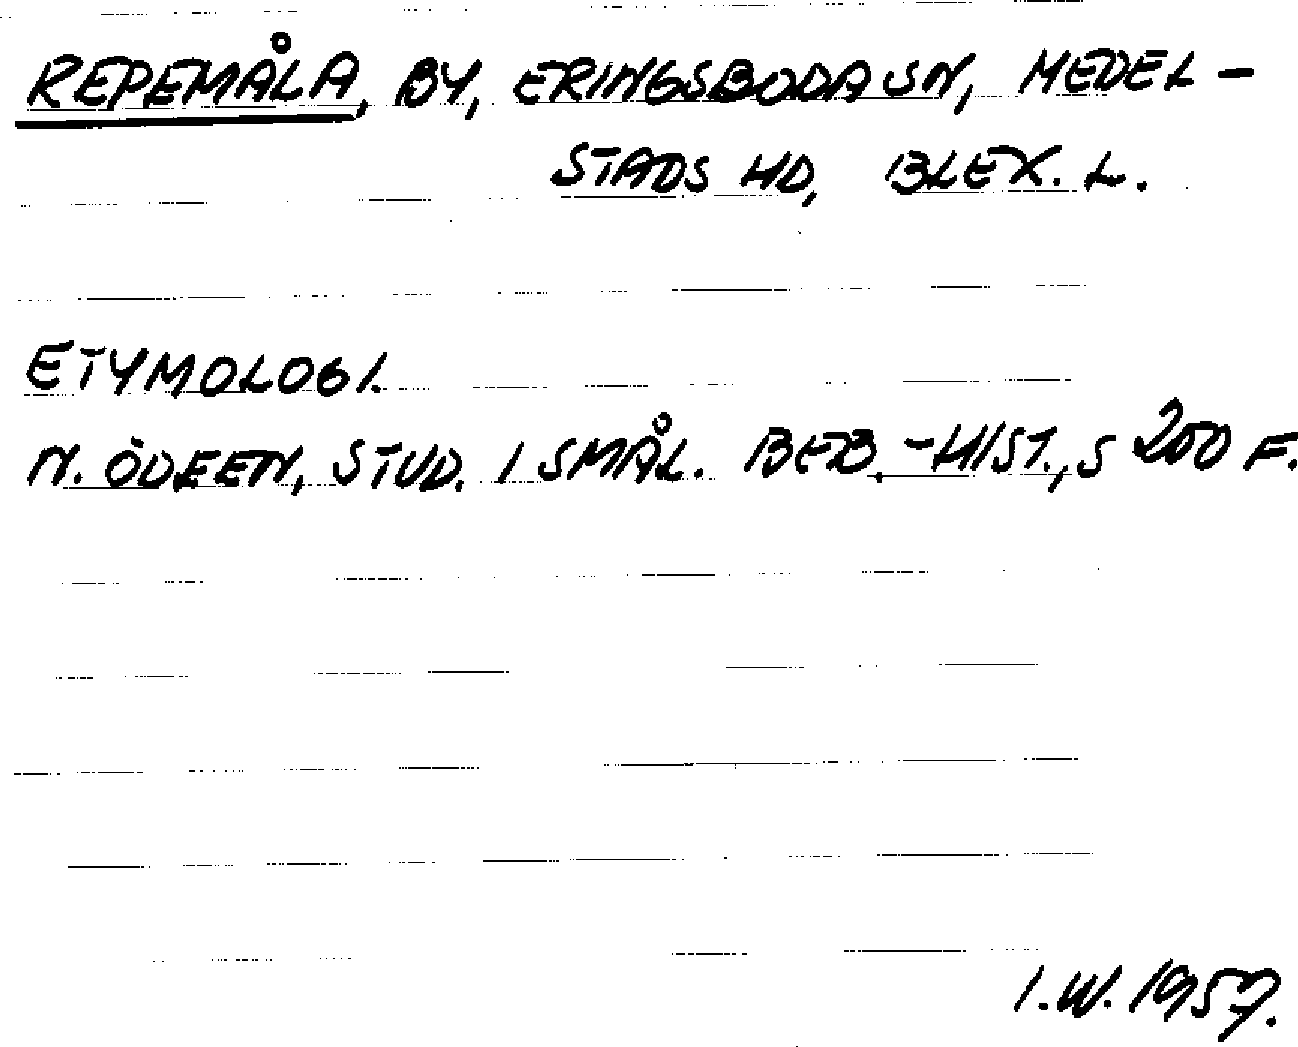 REPEMÅLA, BY, ERINGSBODA SN, MEDEL-
STADS HD, BLEK. L.
ETYMOLOGI.
N. ÖDEEN, STUD. I SMÅL. BEB.-HIST., S 200 F.
I.W. 1957.